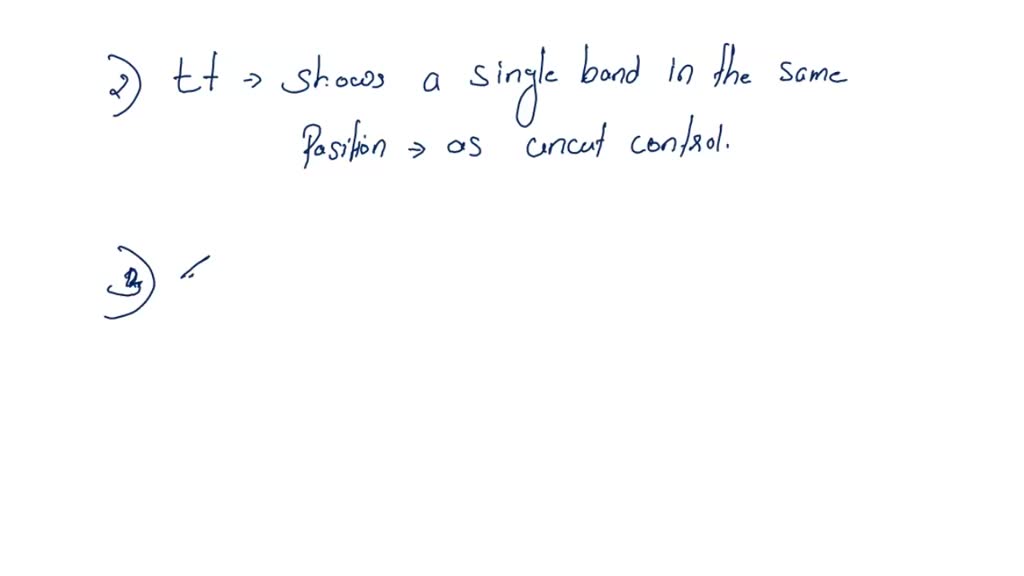 2) tt → shows a single band in the same
Position → as uncut control.
3)